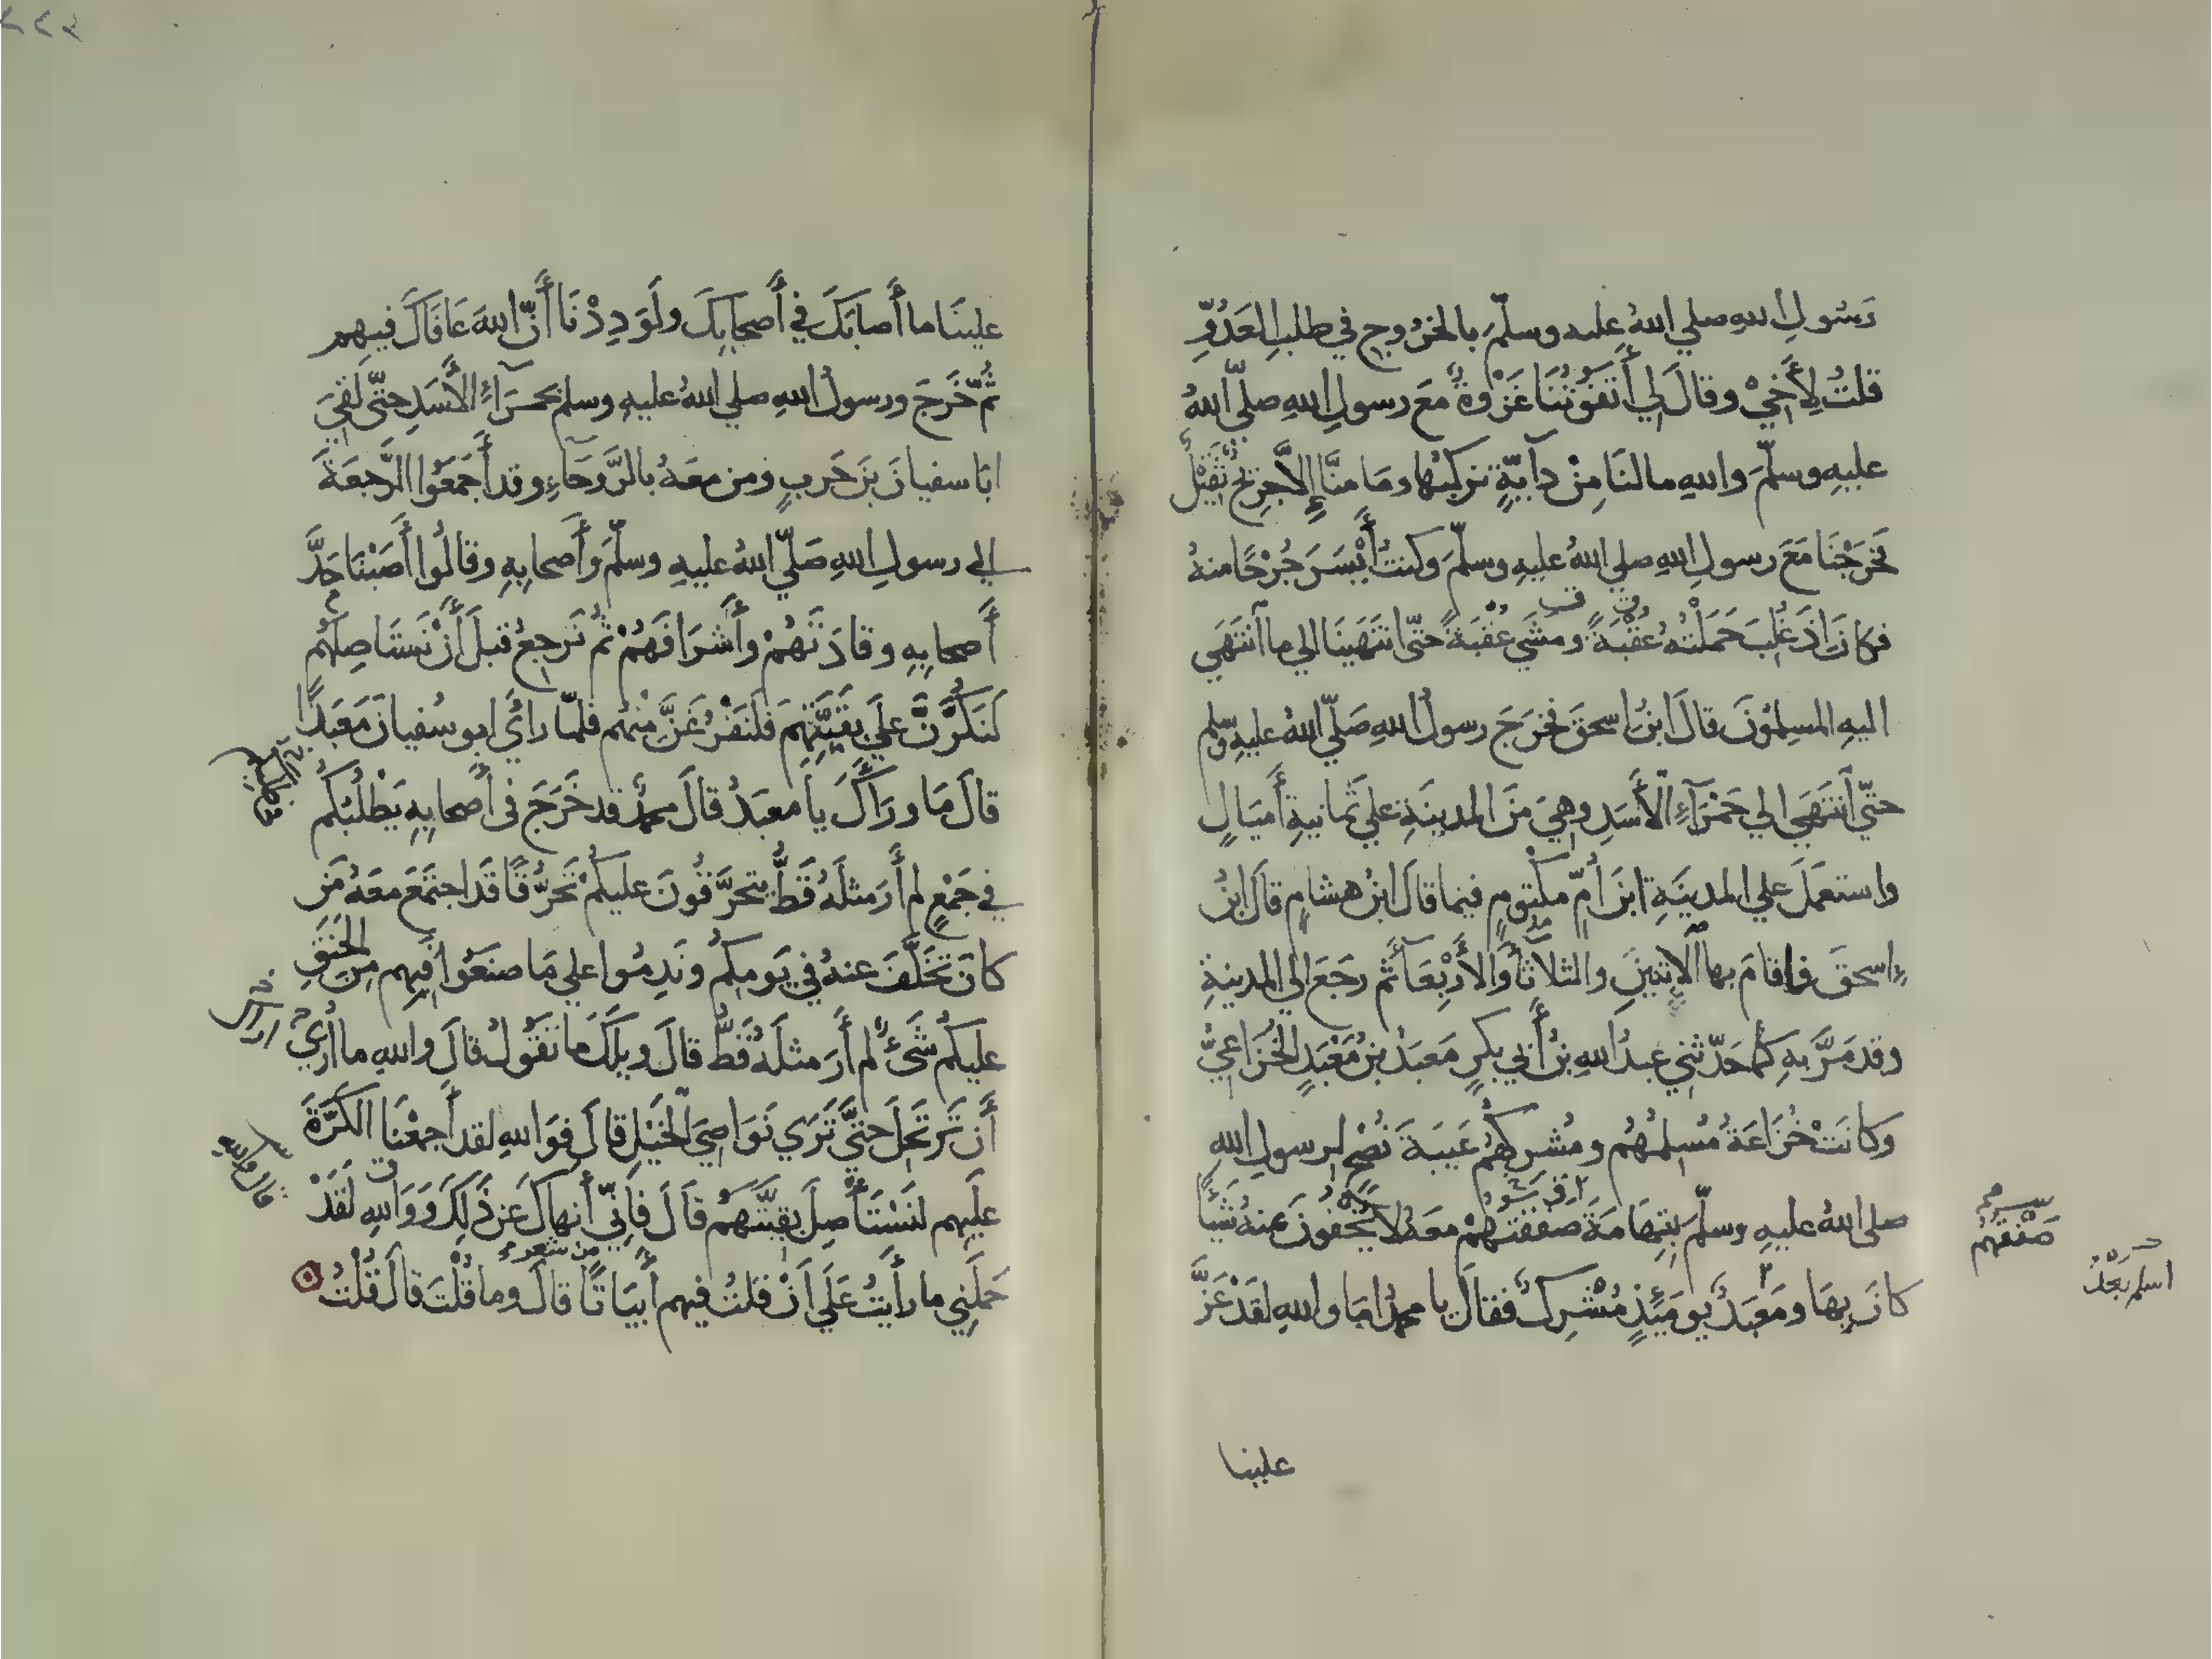 رَسُولِ اللهِ صلي اللهُ عليه وسلّمَ بالخرُوجِ في طلبِ العَدُوِّ
قلتُ لِأَخِيْ وقالَ لِي أَتَفُوتُنَا غَزْوةٌ مَعَ رسولِ اللهِ صلّي اللهُ
عليهِ وسلّمَ واللهِ مالنَا مِنْ دآبّةٍ نركبُها ومَا منَّا إِلّا جرِيحٌ ثَقِيْلٌ
فخرَجْنَا مَعَ رسولِ اللهِ صلي اللهُ عليهِ وسلّمَ وكنتُ أَيْسَرَ جُرْحًا منهُ
فكانَ اذَ غُلِبَ حَمَلْتُهُ عُقْبَةً ومشَي عُقْبَةً حتّى انتَهَينَا الي ما آنتَهَي
اليهِ المسلِمُونَ قالَ ابنُ اسحقَ فخرَجَ رسولُ اللهِ صَلّي اللهُ عليهِ وسلم
حتّي آنتَهَي الي حَمْرَآءِ الْأَسَدِ وهِيَ مَنَ المدينَةِ علي ثمانيةِ أَميَالٍ
واستعمَلَ علي المدينَةِ ابنَ أُمّ مكْتومٍ فيما قالَ ابنُ هشامٍ قالَ ابنُ
إسحقَ فاقامَ بها الْاثنينِ والثلاثآَ والأَرْبِعَآ ثم رجَعَ الي المدينةِ
وقد مَرَّ بهِ كما حَدّثني عبدُ اللهِ بنُ أَبي بكرٍ مَعبَدُ بنُ مَعْبَدٍ الخُزَاعيُّ
وكانَتْ خُزَاعَةُ مُسلِمُهُم ومُشرِكُهُم عَيبَةَ نُصْحٍ لرسولِ اللهِ
صلي اللهُ عليهِ وسلّمَ بتِهَامَةَ صفقتُهُمْ معَهُ لا يُخْفُونَ عنهُ شَيْأً
كانَ بِهَا ومَعبَدٌ يومَئِذٍ مُشْرِكٌ فقالَ يا محمّدُ امَا واللهِ لقَدْ عَزَّ
صَفْقَهُم
اسلم بَعْدُ
علينا
علينَا ما أَصابَكَ في أَصحابِكَ ولَوَدِدْنَا أَنّ اللهَ عَافَاكَ فيهِم
ثُمّ خَرَجَ ورسولُ اللهِ صلي اللهُ عليهِ وسلم بحمرَآءِ الأَسَدِ حتّى لَقِيَ
ابَا سفيانَ بنَ حَربٍ ومن معَهُ بالرَّوحَاءِ وقد أَجمَعَوُا الرَّجعَةَ
الي رسولِ اللهِ صَلّي اللهُ عليهِ وسلّمَ وأَصحابِهِ وقالُوا أَصَبْنَا حَدَّ
أَصحابِهِ وقادَتَهُمْ وأَشرَافَهُمْ ثُم نَرجِعُ قبلَ أَنْ نَستَاصِلَهُم
لَنَكُرَّنَّ علَي بقيَّتِهِمَ فلنَفْرُغَنَّ مِنهُم فلمّا رأَي ابو سُفيانَ مَعبَدًا
قالَ مَا ورَآَكَ يا معبَدُ قالَ محمدٌ قد خَرَجَ في أَصحابِهِ يَطْلُبُكم
في جَمْعٍ لم أَرَ مثلَهُ قَطُّ يتحرَّقُونَ عليكُمْ تحَرُّقًا قَد اجتَمَعَ معَهُ مَن
كانَ تخَلَّفَ عنهُ في يَومِكُم ونَدِمُوا علي مَا صنَعَوُا فيهِم مِنَ الحنَقِ
عليكُم شَئٌ لم أَرَ مثلَهُ قَطُّ قالَ ويلَكَ مَا تقُولُ قالَ واللهِ ما أُريْ
أَن تَرتحَلَ حتىَّ تَرَي نَوَاصِيَ الْخيَلِ قالَ فوَاللهِ لقد أَجمعْنَا الكَرَّةَ
علَيهِم لنَسْتَأْصِلَ بقيَّتَهُم قالَ فَاِنّي أَنهاكَ عَن ذَلِكَ وَوَاللهِ لَقَدْ
حَمَلَنِي ما رأَيتُ عَلَي اَنْ قلتُ فيهِم أَبيَاتًا قالَ وما قُلْتَ قالَ قُلْتُ
من شعر